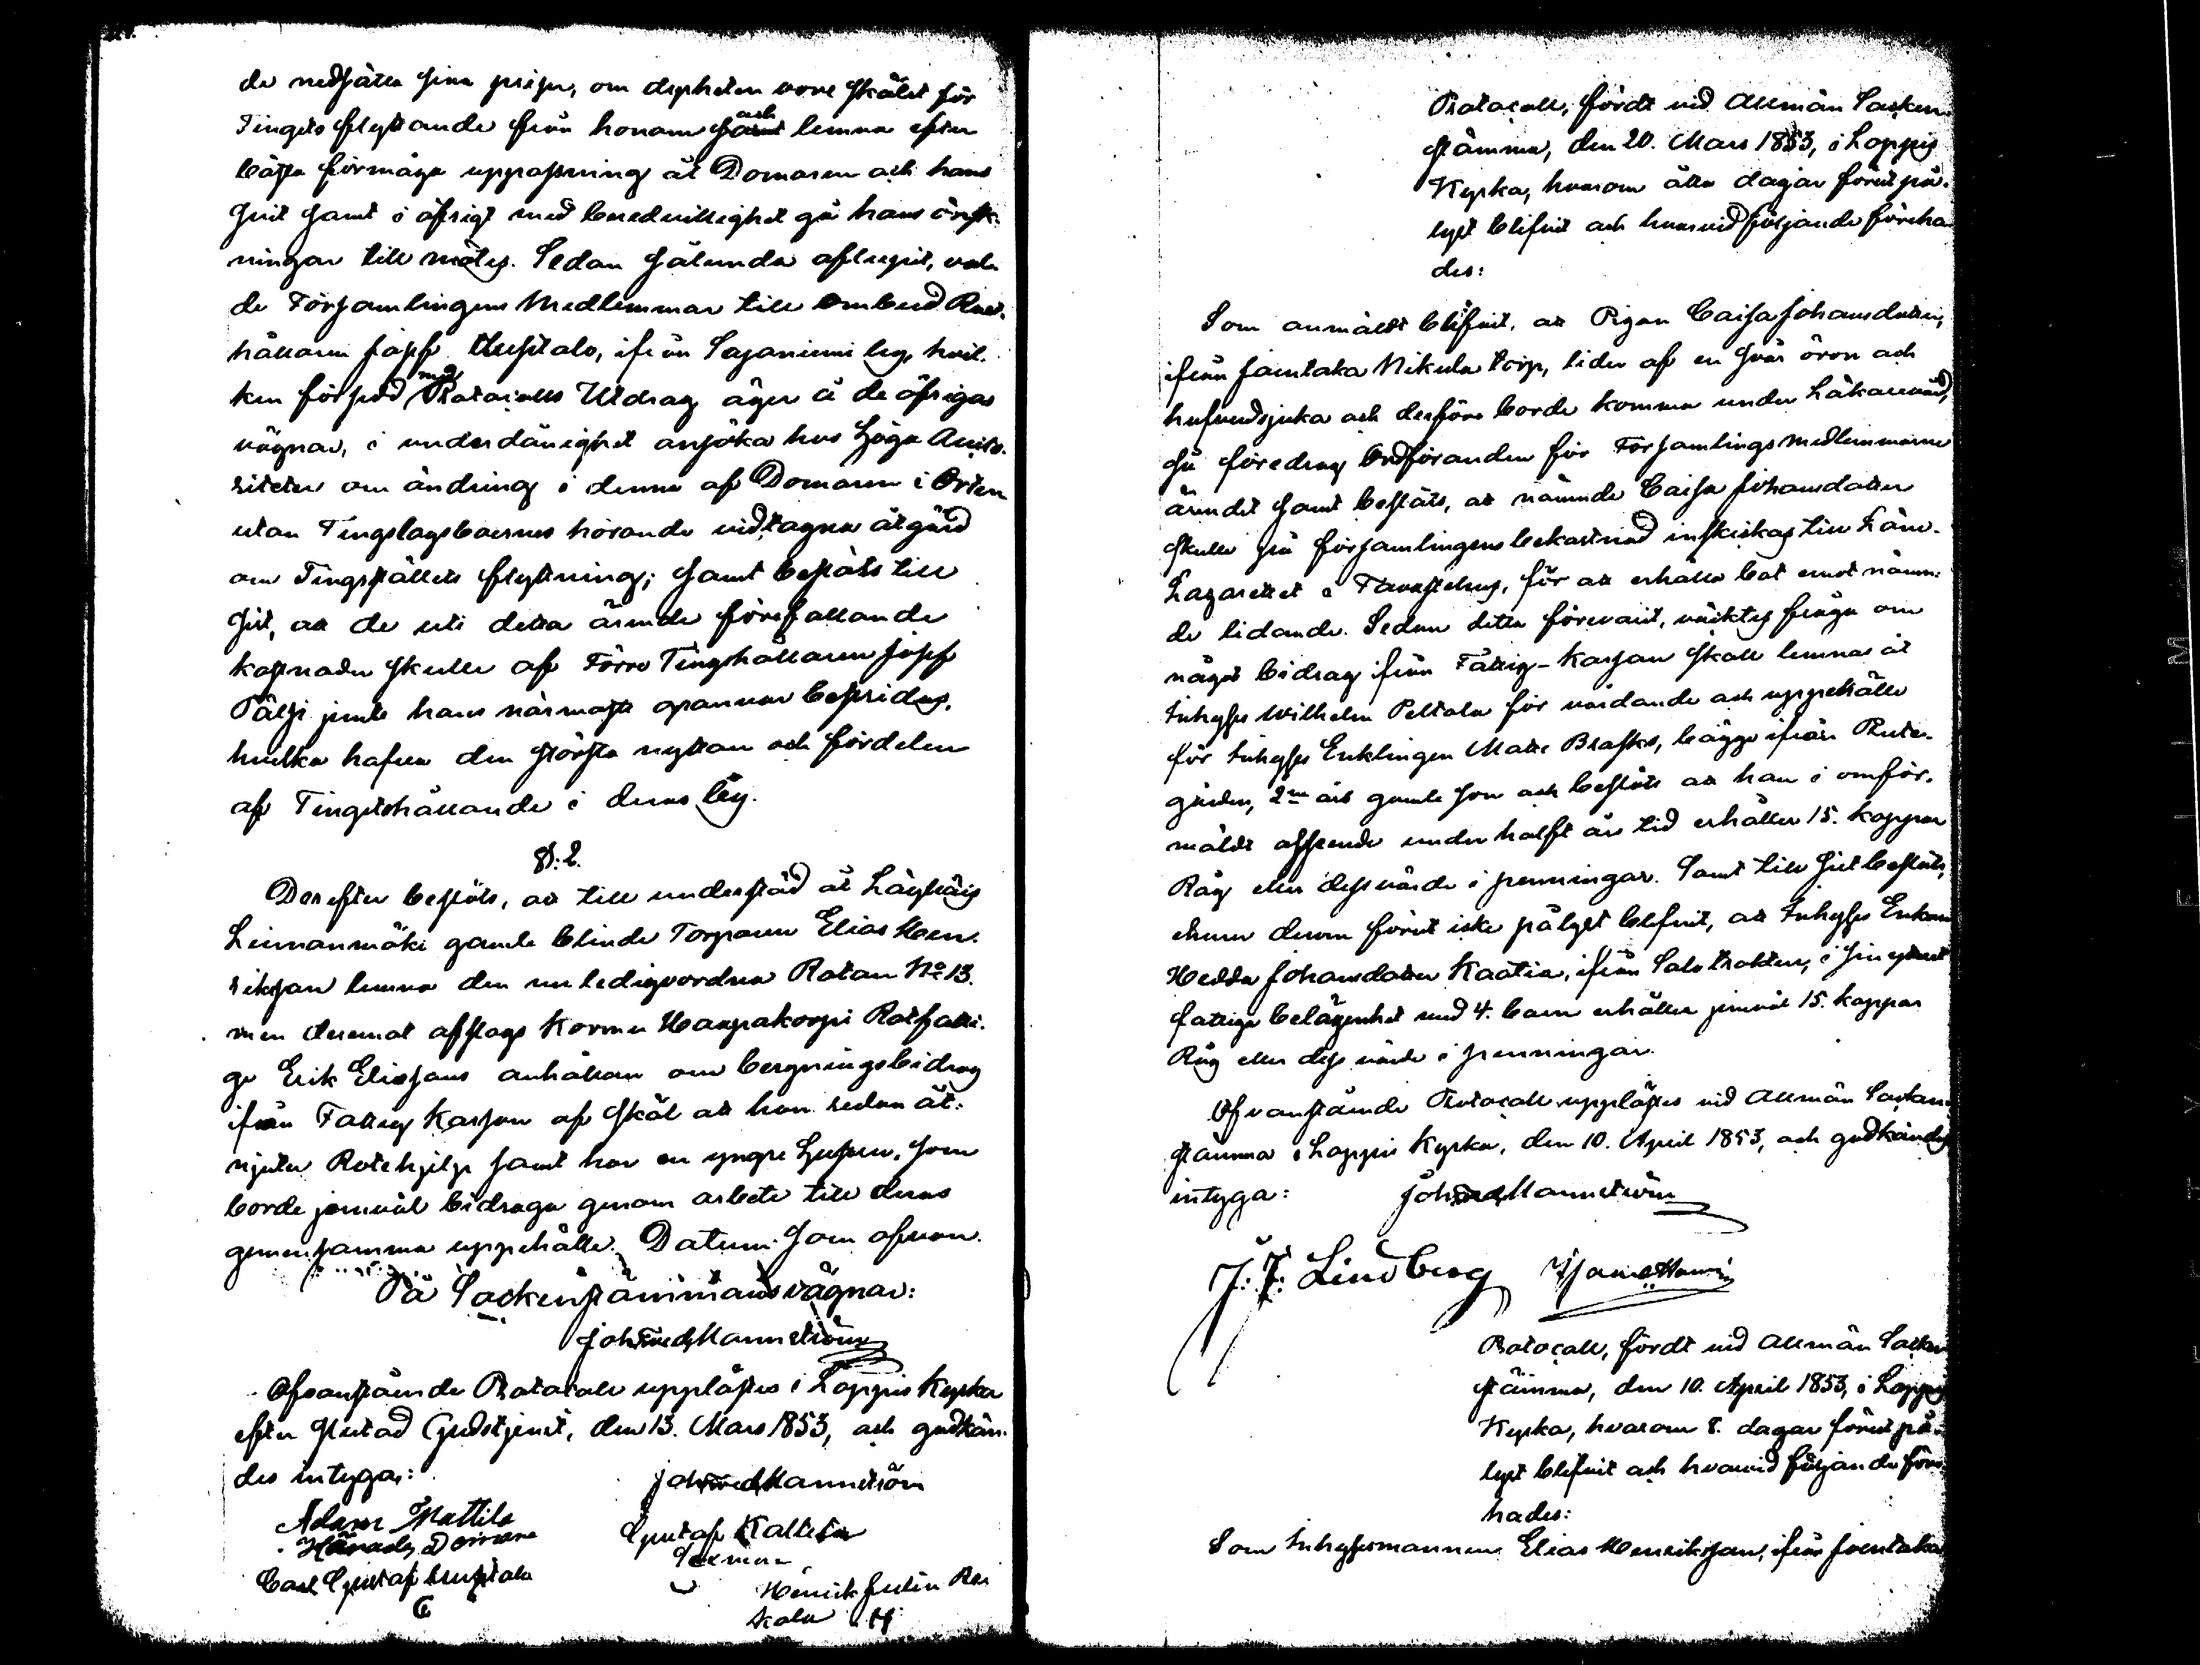 de nedsätta sina priser, om dyrheten vore skälet för
Tingets flyttande från honom och lemna efter
bästa förmåga uppassning åt Domaren och hans
suit samt i öfrigt med beredvillighet gå hans önsk-
ningar till mötes. Sedan sålunda aflupit, val-
de Församlingens Medlemmar till Ombud Rust-
hållaren Josef Uusitalo, ifrån Sajaniemi by, hvil-
ken försedd med Protocolls Utdrag äger å de öfrigas
vägnar, i underdånighet ansöka hos Höga Aucto-
riteter om ändring i denna af Domaren i Orten
utan Tingslagsboernes hörande vidtagna åtgärd
om Tingsställets flyttning; samt beslöts till
slut, att de uti detta ärende förefallande
kostnader skulle af Förre Tingshållaren Josef
Pälsi jemte hans närmaste grannar bestridas,
hvilka hafva den största nyttan och fördelen
af Tingetshållande i deras by.
§. 2.
Derefter beslöts, att till understöd åt Läyliäis
Leimanmäki gamla blinda Torparen Elias Hen-
riksson lemna den nu ledigvordna Rotan No 13.
men deremot afslogs Kormu Haapakorpi Rotfatti-
ge Erik Eliassons anhållan om bergningsbidrag
ifrån Fattig Kassan af skäl att han redan åt-
njuter Rotehjelp samt har en yngre hustru, som
borde jemväl bidraga genom arbete till deras
gemensamma uppehälle. Datum som ofvan.
På Sockenstämmans vägnar:
Joh Fred Mannström
Ofvanstående Protocoll upplästes i Loppis Kyrka
efter slutad Gudstjenst, den 13. Mars 1853, och godkän-
des intyga:
Joh Fred Mannström
Adam Mattila
Härads Domare
Gustaf Kalttila
Sexman
Carl Gustaf Uusitalo
Henrik Julin
Protocoll, fördt vid Allmän Socken-
stämma, den 20. Mars 1853, i Loppis
Kyrka, hvarom åtta dagar förut på-
lyst blifvit och hvarvid följande föreha-
des:
Som anmäldt blifvit, att Pigan Caisa Johansdotter,
ifrån Jountaka Nikula torp, lider af en svår öron och
hufvudsjuka och derföre borde komma under Läkarevård,
så föredrog Ordföranden för Församlings medlemmarne
ärendet samt beslöts, att nämnde Caisa Johansdotter
skulle på församlingens bekostnad inskickas till Läns-
Lazarettet i Tavastehus, för att erhålla bot emot nämn-
de lidande. Sedan detta förevarit, väcktes fråga om
något bidrag ifrån Fattig-Kassan skall lemnas åt
Inhyses Wilhelm Peltola för vårdande och uppehälle
för Inhyses Enklingen Matts Brasks, bägge ifrån Puta-
gården, 2ne års gamle son och beslöts att han i omför-
mäldt afseende under halft års tid erhåller 15. kappar
Råg eller dess värde i penningar. Samt till slut beslöts,
ehuru derom förut icke pålyst blifvit, att Inhyses Enkan
Hedda Johansdotter Kaatia, ifrån Salo trakten, i sin ytterst
fattiga belägenhet med 4. barn erhåller jemväl 15. kappar
Råg eller dess värde i penningar.
Ofvanstående Protocoll upplästes vid Allmän Socken-
stämma i Loppis Kyrka, den 10. April 1853, och godkändes
intyga: Joh Fred Mannström
J. F. Lindberg
Protocoll, fördt vid Allmän Socken
stämma, den 10. April 1853, i Loppis
Kyrka, hvarom 8. dagar förut på-
lyst blifvit och hvarvid följande före-
hades:
Som Inhysesmannen Elias Henriksson, ifrån Jountaka